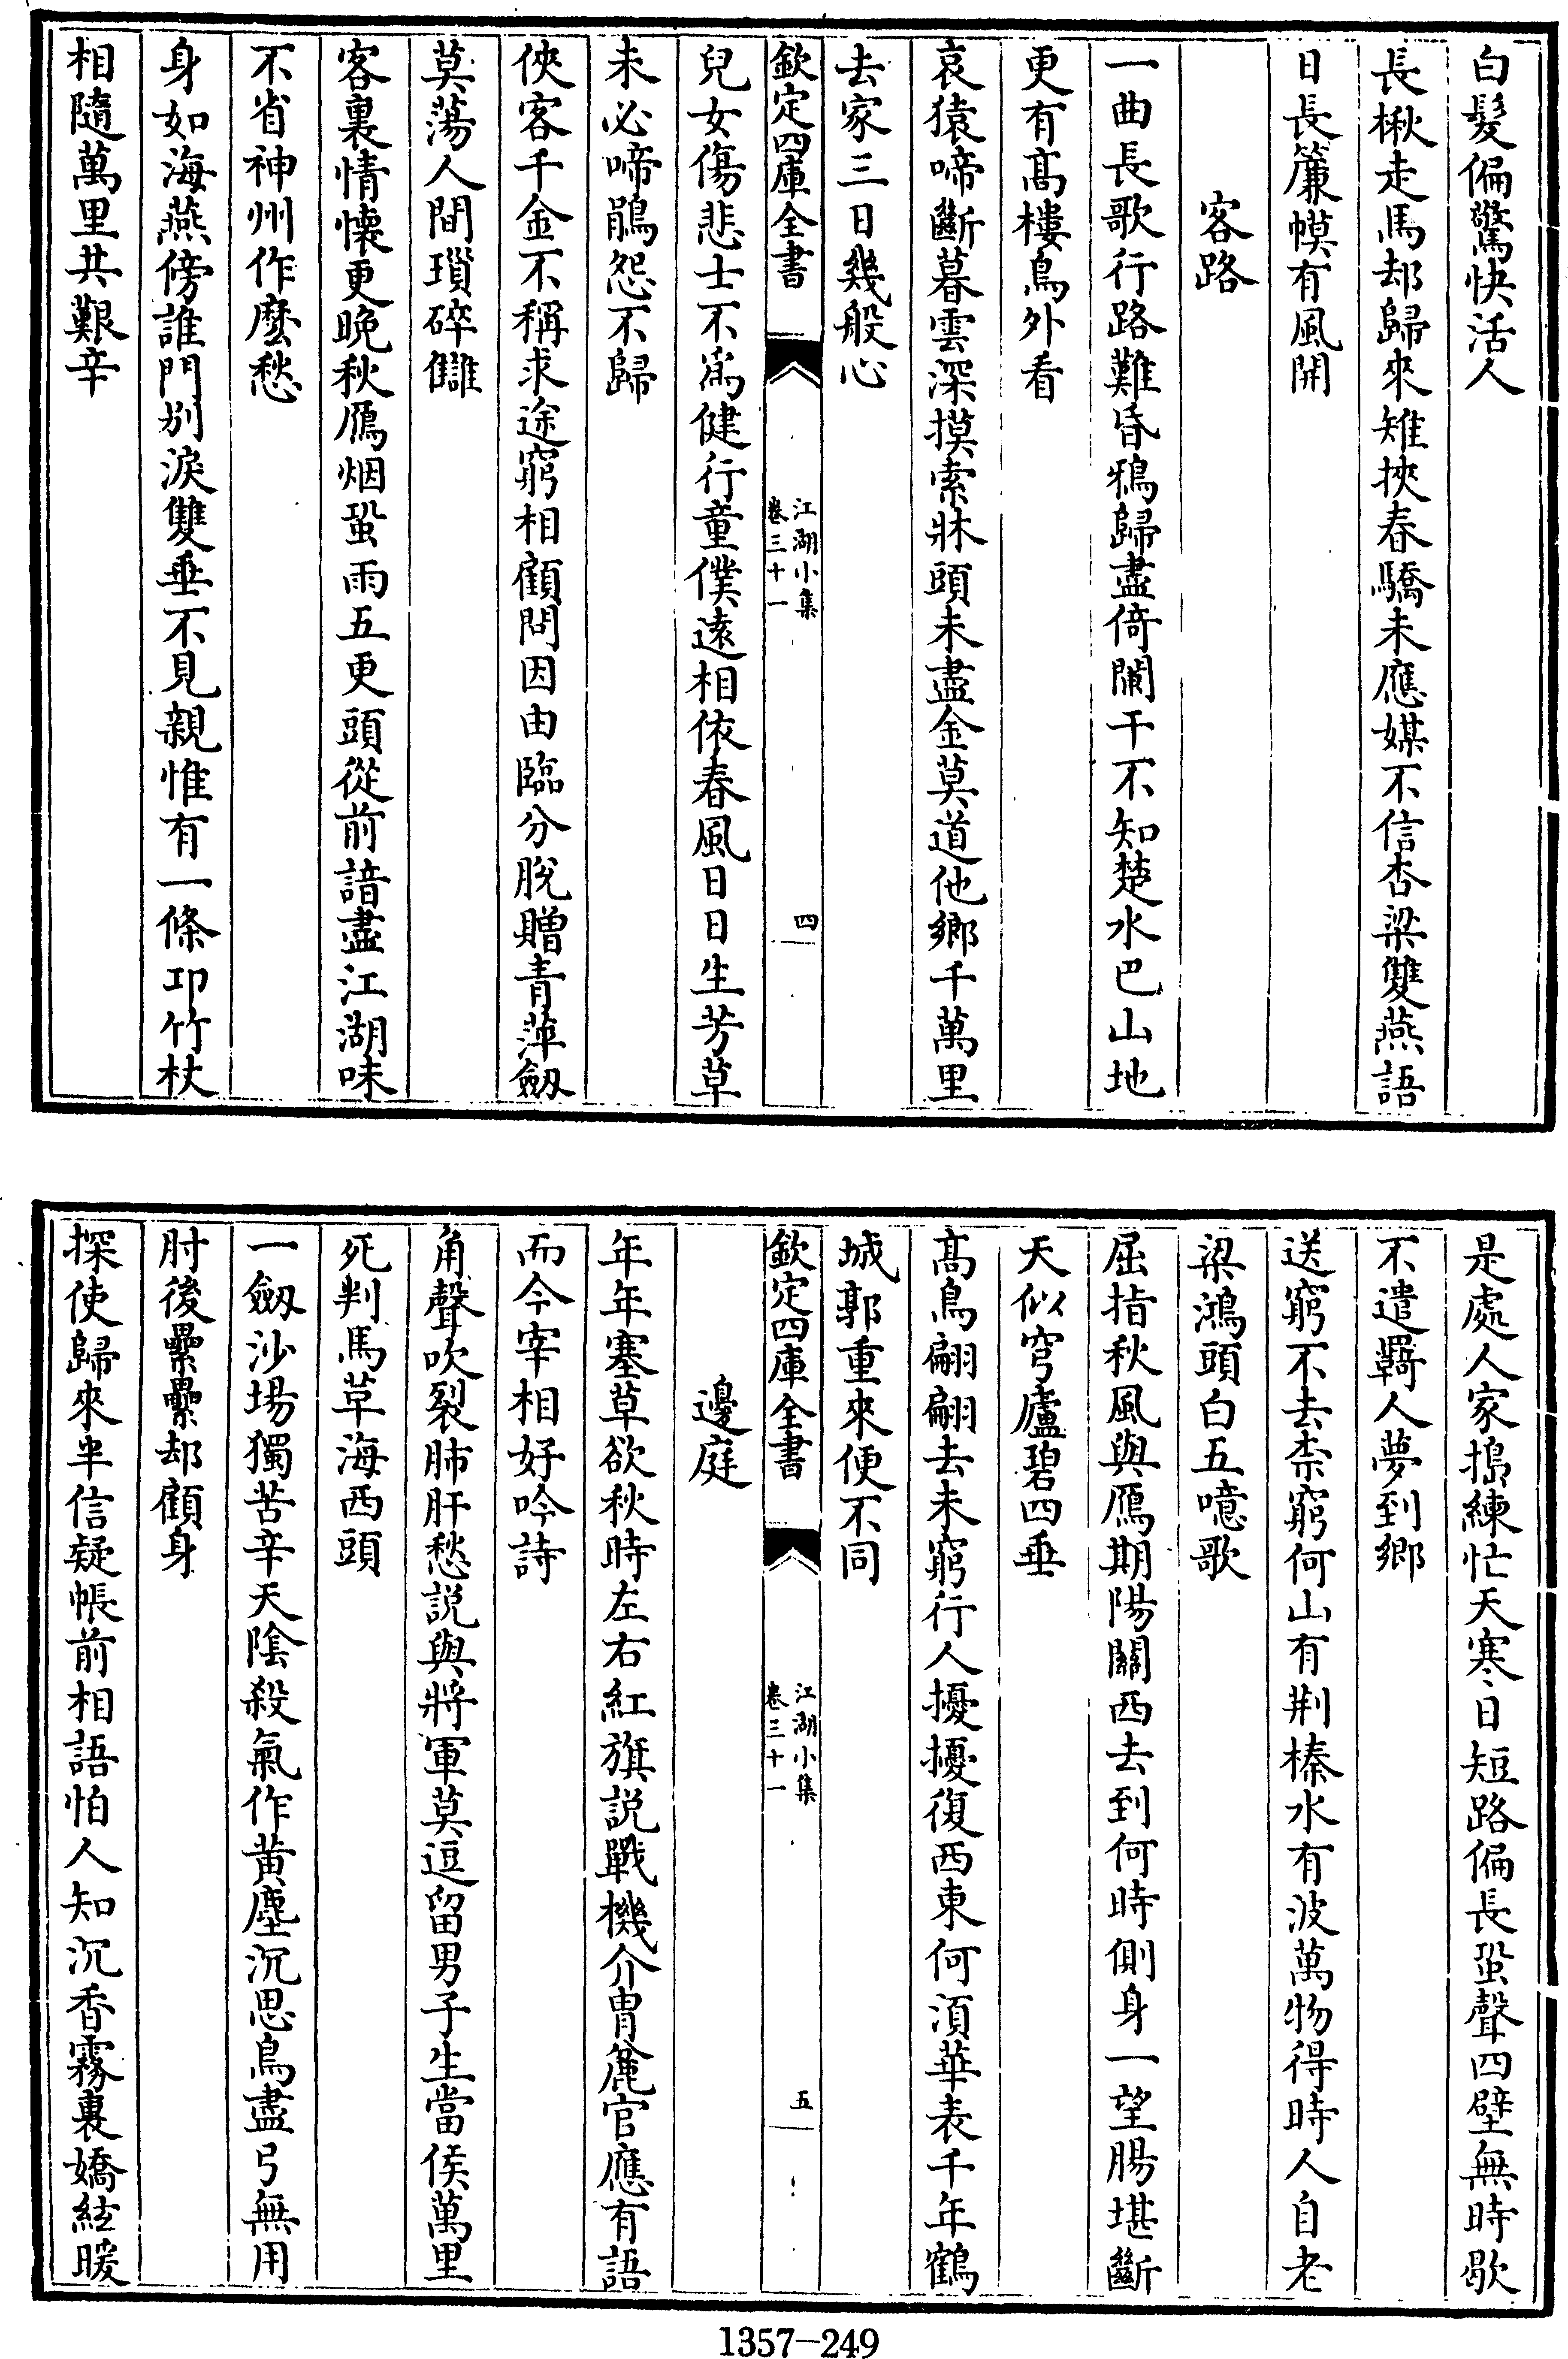 白髮偏驚快活人
長楸走馬却歸來雉挾春驕未應媒不信杏梁雙燕語
日長簾幙有風開
客路
一曲長歌行路難昏鴉歸盡倚闌干不知楚水巴山地
更有髙樓鳥外看
哀猿啼斷暮雲深摸索牀頭未盡金莫道他鄉千萬里
去家三日幾般心
欽定四庫全書
江湖小集
卷三十一
四
兒女傷悲士不為健行童僕逺相依春風日日生芳草
未必啼鵑怨不歸
俠客千金不稱求途窮相顧問因由臨分脫贈青萍劔
莫蕩人間瑣碎讎
客裏情懷更晚秋鴈烟蛩雨五更頭從前諳盡江湖味
不省神州作麽愁
身如海燕傍誰門别淚雙垂不見親惟有一條卭竹杖
相隨萬里共艱辛
是處人家搗練忙天寒日短路偏長蛩聲四壁無時歇
不遣羇人夢到鄉
送窮不去柰窮何山有荆榛水有波萬物得時人自老
梁鴻頭白五噫歌
屈指秋風與鴈期陽關西去到何時側身一望腸堪斷
天似穹廬碧四垂
髙鳥翩翩去未窮行人擾擾復西東何湏華表千年鶴
城郭重來便不同
欽定四庫全書
江湖小集
卷三十一
五
邊庭
年年塞草欲秋時左右紅旗説戰機介胄麄官應有語
而今宰相好吟詩
角聲吹裂肺肝愁説與將軍莫逗留男子生當侯萬里
死判馬草海西頭
一劔沙場獨苦辛天陰殺氣作黄塵沉思鳥盡弓無用
肘後纍纍却顧身
探使歸來半信疑帳前相語怕人知沉香霧裏嬌絃暖
1357-249